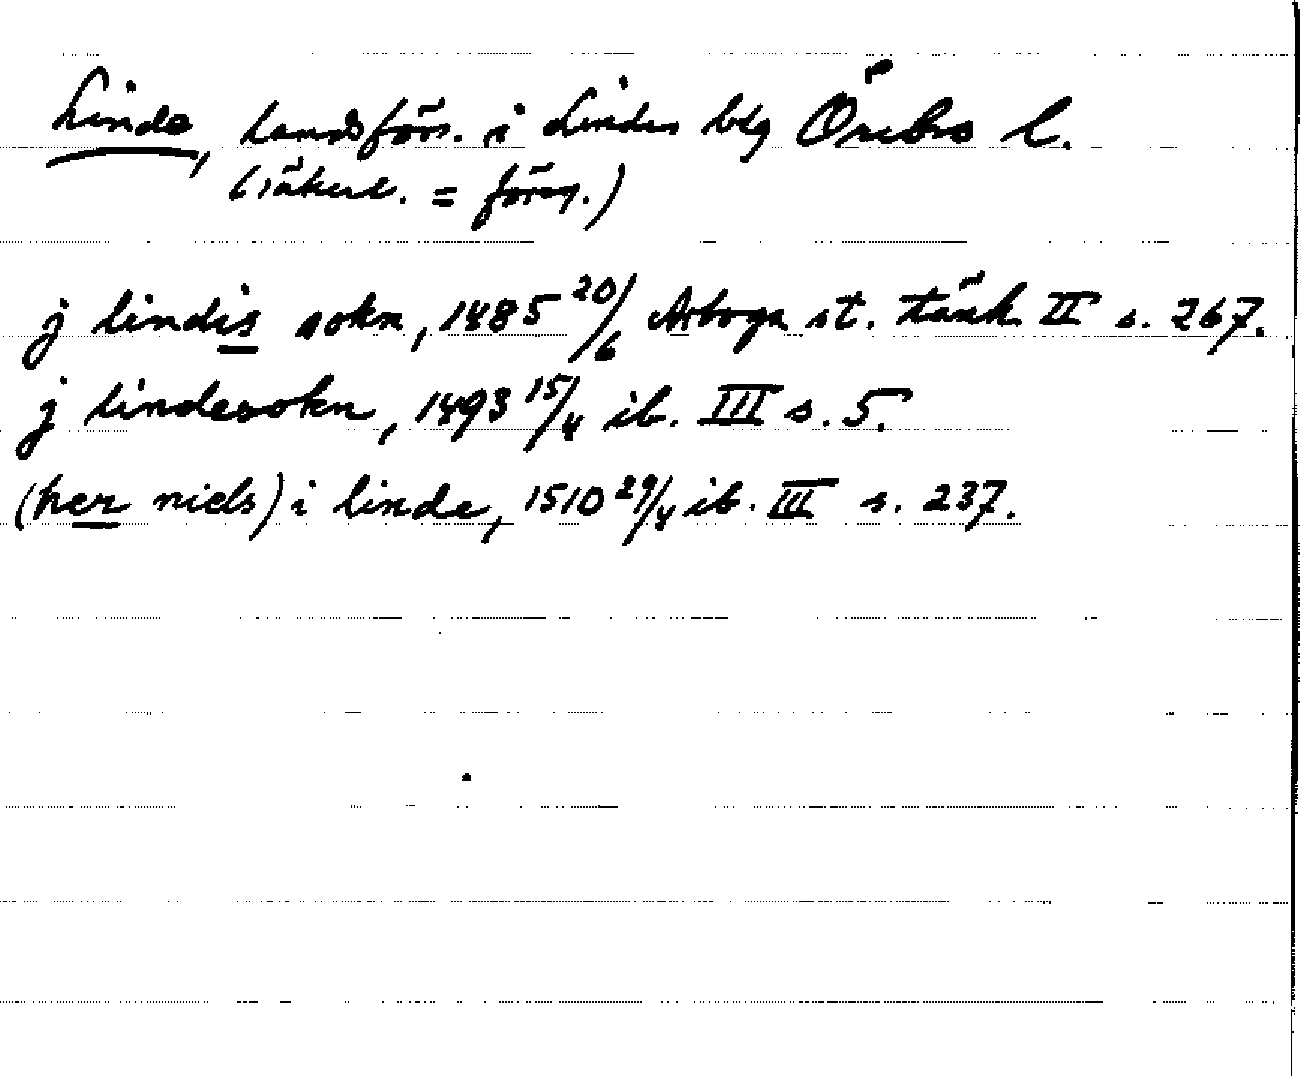 Linde, landsförs. i Lindes blg Örebro l.
(säkerl. = förs.)
j lindis sokn, 1485 20/6 Arboga st. tänk. II s. 267.
j lindesokn, 1493 15/4 ib. III s. 5.
(her niels) i linde, 1510 29/4 ib. III s. 237.